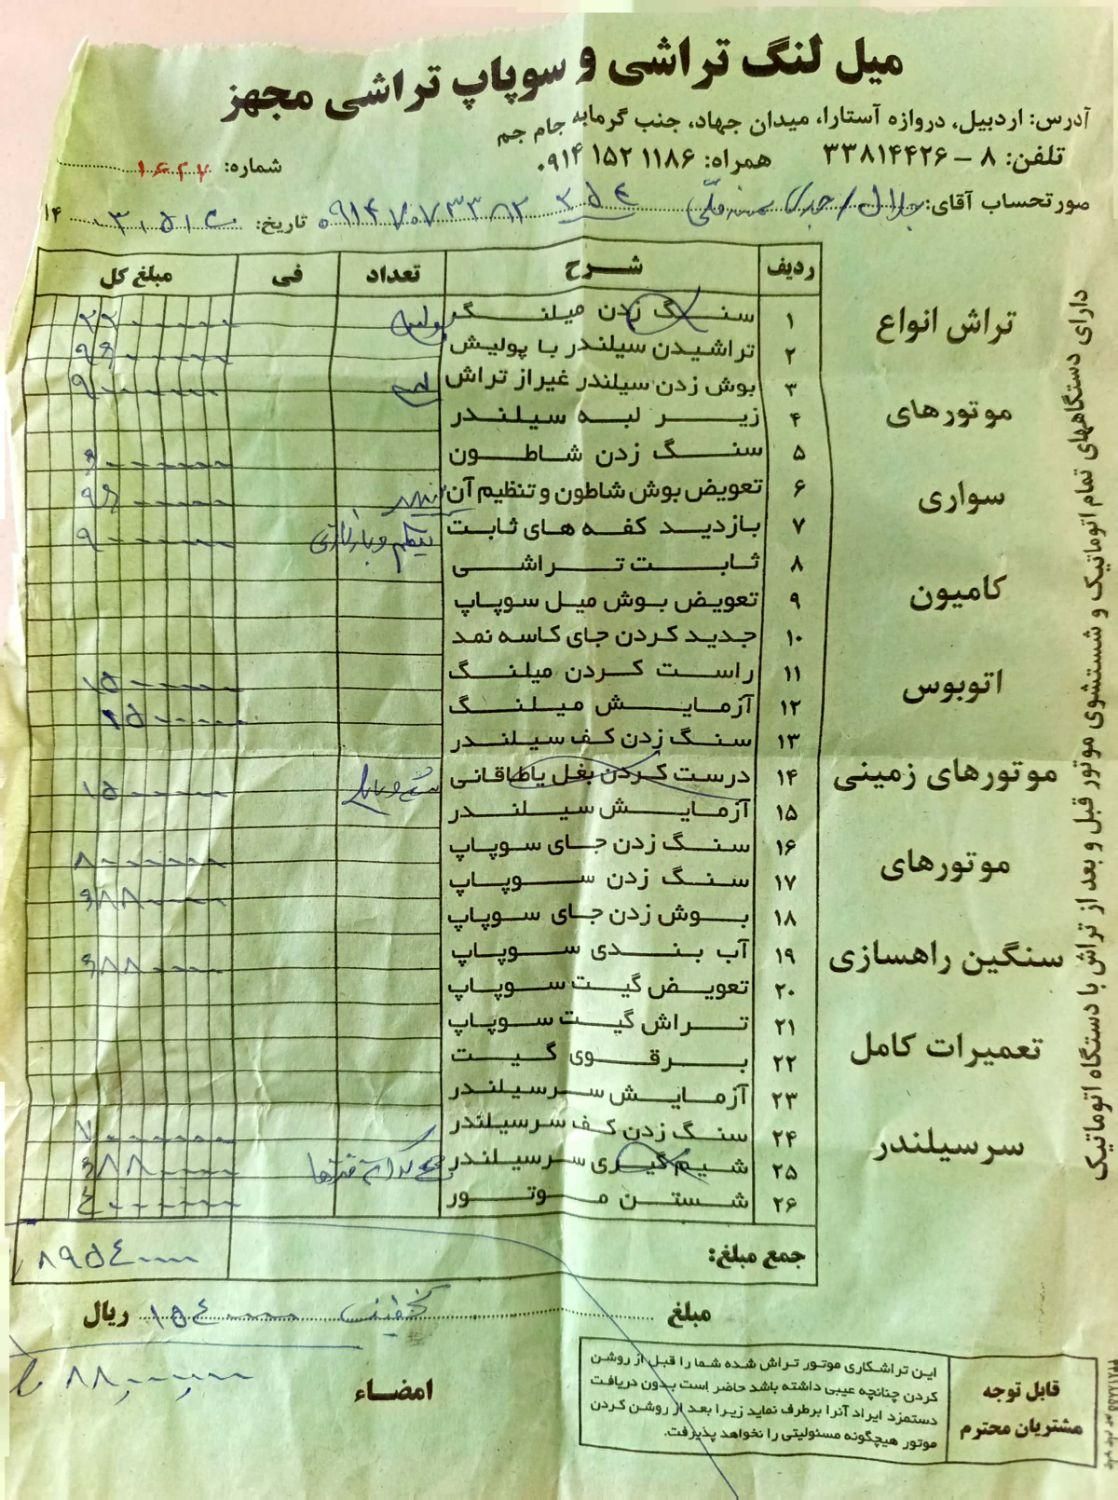 میل لنگ تراشی و سوپاپ تراشی مجهز
آدرس: اردبیل، دروازه آستارا، میدان جهاد، جنب گرمابه جام جم
تلفن: ۸ – ۳۳۸۱۴۴۲۶ همراه: ۰۹۱۴ ۱۵۲ ۱۱۸۶
شماره:
صورتحساب آقای: جلال ۰۹۱۴۷۰۷۳۳۸۲ تاریخ: ۱۴
ردیف شرح تعداد فی مبلغ کل
۱ سنگ زدن میلنگ ۲۲۰۰۰۰۰۰
۲ تراشیدن سیلندر با پولیش ۹۶۰۰۰۰۰
۳ بوش زدن سیلندر غیراز تراش ۹۰۰۰۰۰۰
۴ زیر لبه سیلندر
۵ سنگ زدن شاطون ۶۰۰۰۰۰۰
۶ تعویض بوش شاطون و تنظیم آن ۹۶۰۰۰۰۰
۷ بازدید کفه های ثابت ۹۰۰۰۰۰۰
۸ ثابت تراشی
۹ تعویض بوش میل سوپاپ
۱۰ جدید کردن جای کاسه نمد
۱۱ راست کردن میلنگ ۱۵۰۰۰۰۰
۱۲ آزمایش میلنگ ۱۵۰۰۰۰۰
۱۳ سنگ زدن کف سیلندر
۱۴ درست کردن بغل یاطاقانی ۱۵۰۰۰۰۰
۱۵ آزمایش سیلندر
۱۶ سنگ زدن جای سوپاپ ۸۰۰۰۰۰۰
۱۷ سنگ زدن سوپاپ ۶۸۸۰۰۰۰
۱۸ بوش زدن جای سوپاپ
۱۹ آب بندی سوپاپ ۶۸۸۰۰۰۰
۲۰ تعویض گیت سوپاپ
۲۱ تراش گیت سوپاپ
۲۲ برقوی گیت
۲۳ آزمایش سرسیلندر
۲۴ سنگ زدن کف سرسیلندر ۷۰۰۰۰۰۰
۲۵ شیم گیری سرسیلندر ۶۸۸۰۰۰۰
۲۶ شستن موتور ۴۰۰۰۰۰۰
جمع مبلغ: ۸۹۵۴۰۰۰۰
مبلغ تخفیف ۱۵۴۰۰۰۰ ریال
۸۸٬۰۰۰٬۰۰۰
امضاء
قابل توجه
مشتریان محترم
این تراشکاری موتور تراش شده شما را قبل از روشن
کردن چنانچه عیبی داشته باشد حاضر است بدون دریافت
دستمزد ایراد آنرا برطرف نماید زیرا بعد از روشن کردن
موتور هیچگونه مسئولیتی را نخواهد پذیرفت.
تراش انواع
موتورهای
سواری
کامیون
اتوبوس
موتورهای زمینی
موتورهای
سنگین راهسازی
تعمیرات کامل
سرسیلندر
دارای دستگاههای تمام اتوماتیک و شستشوی موتور قبل و بعد از تراش با دستگاه اتوماتیک